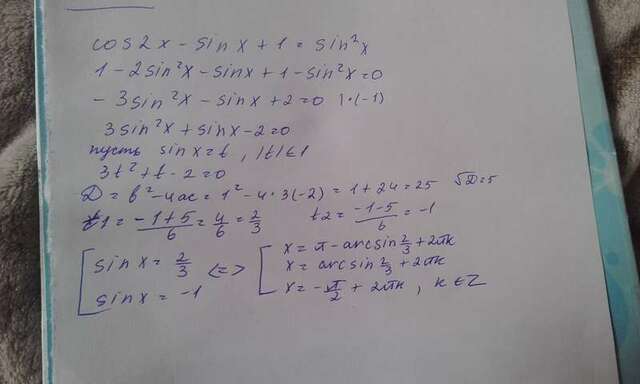 cos2x - sinx + 1 = sin²x
1 - 2sin²x - sinx + 1 - sin²x = 0
- 3sin²x - sinx + 2 = 0 | · (-1)
3sin²x + sinx - 2 = 0
пусть sinx = t, |t| ≤ 1
3t² + t - 2 = 0
D = b² - 4ac = 1² - 4 · 3(-2) = 1 + 24 = 25 √D = 5
t1 = (-1+5)/6 = 4/6 = 2/3 t2 = (-1-5)/6 = -1
[ sinx = 2/3 <=> [ x = π - arcsin 2/3 + 2πk
x = arcsin 2/3 + 2πk
sinx = -1 x = -π/2 + 2πk, k ∈ Z